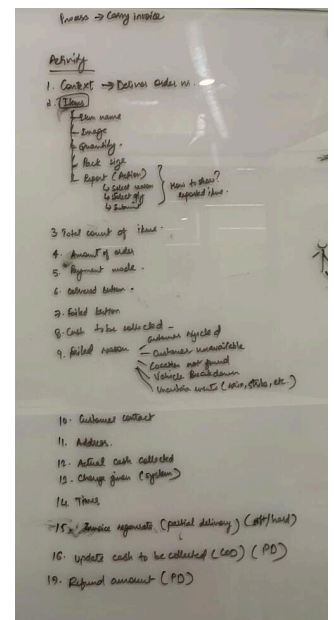 Process → Carry invoice
Activity
1. Context → Deliver order no.
2. Items
Item name
Image
Quantity.
Pack size
Report (Action)
↳ Select reason
↳ Select qty
↳ Submit
How to show?
reported items.
3 Total count of items.
4. Amount of order
5. Payment mode.
6. Delivered button.
7. Failed button
8. Cash to be collected –
9. Failed reason
Customer rejected
Customer unavailable
Location not found
Vehicle Breakdown
Uncertain events (rain, strike, etc.)
10. Customer contact
11. Address.
12. Actual cash collected
13. Change given (system)
14. Times
15. Invoice regenerate (partial delivery) (soft/hard)
16. Update cash to be collected (COD) (PD)
19. Refund amount (PD)